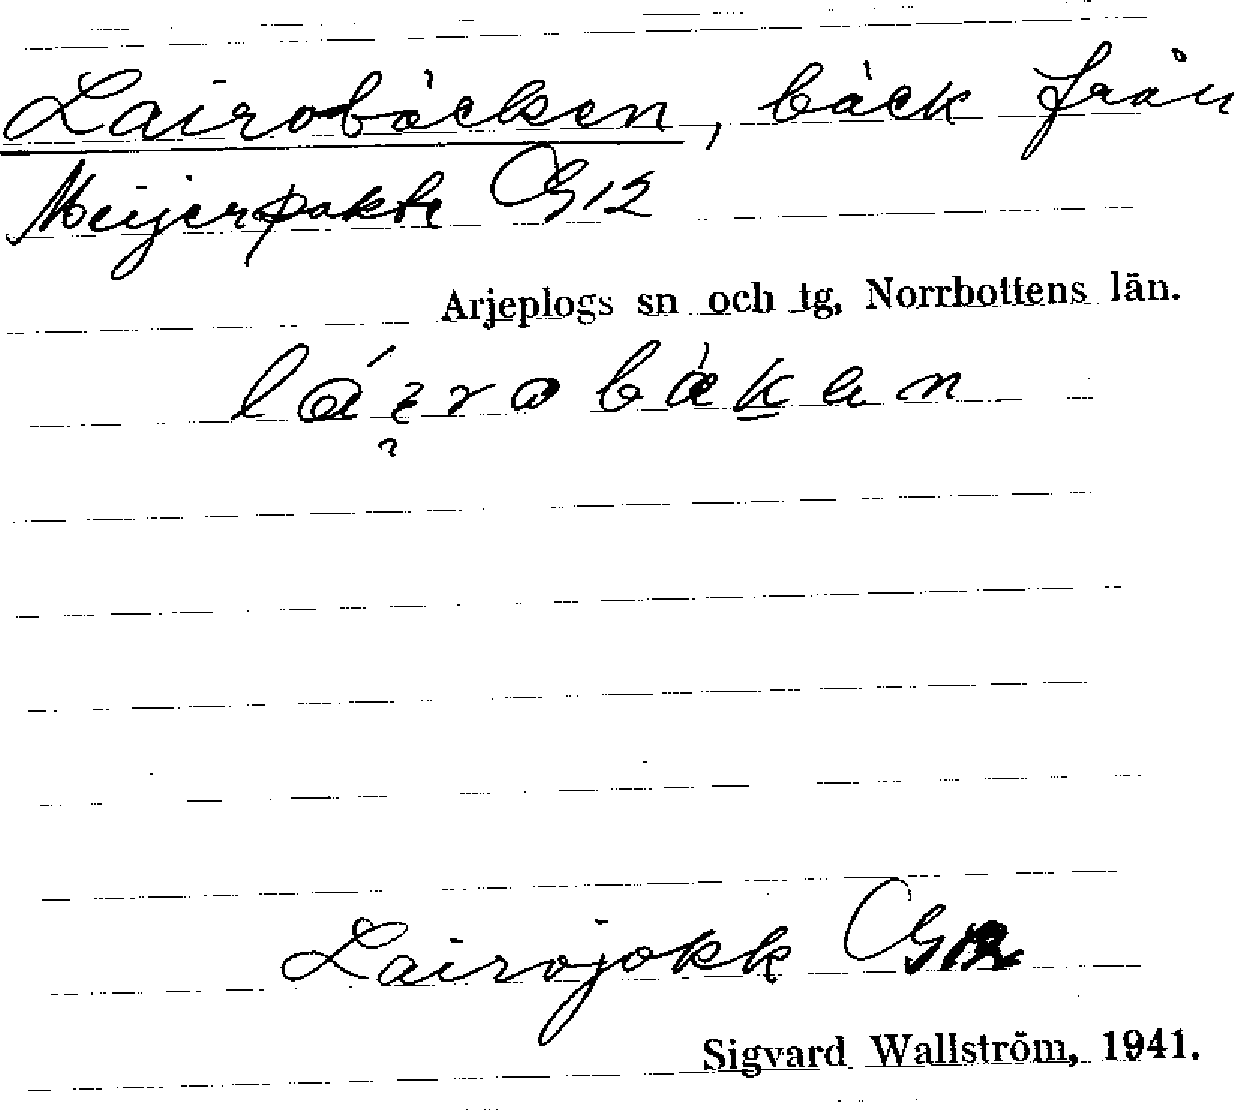 Lairobäcken, bäck från
Meijerpakte G12
Arjeplogs sn och tg, Norrbottens län.
Lairojokk G12
Sigvard Wallström, 1941.